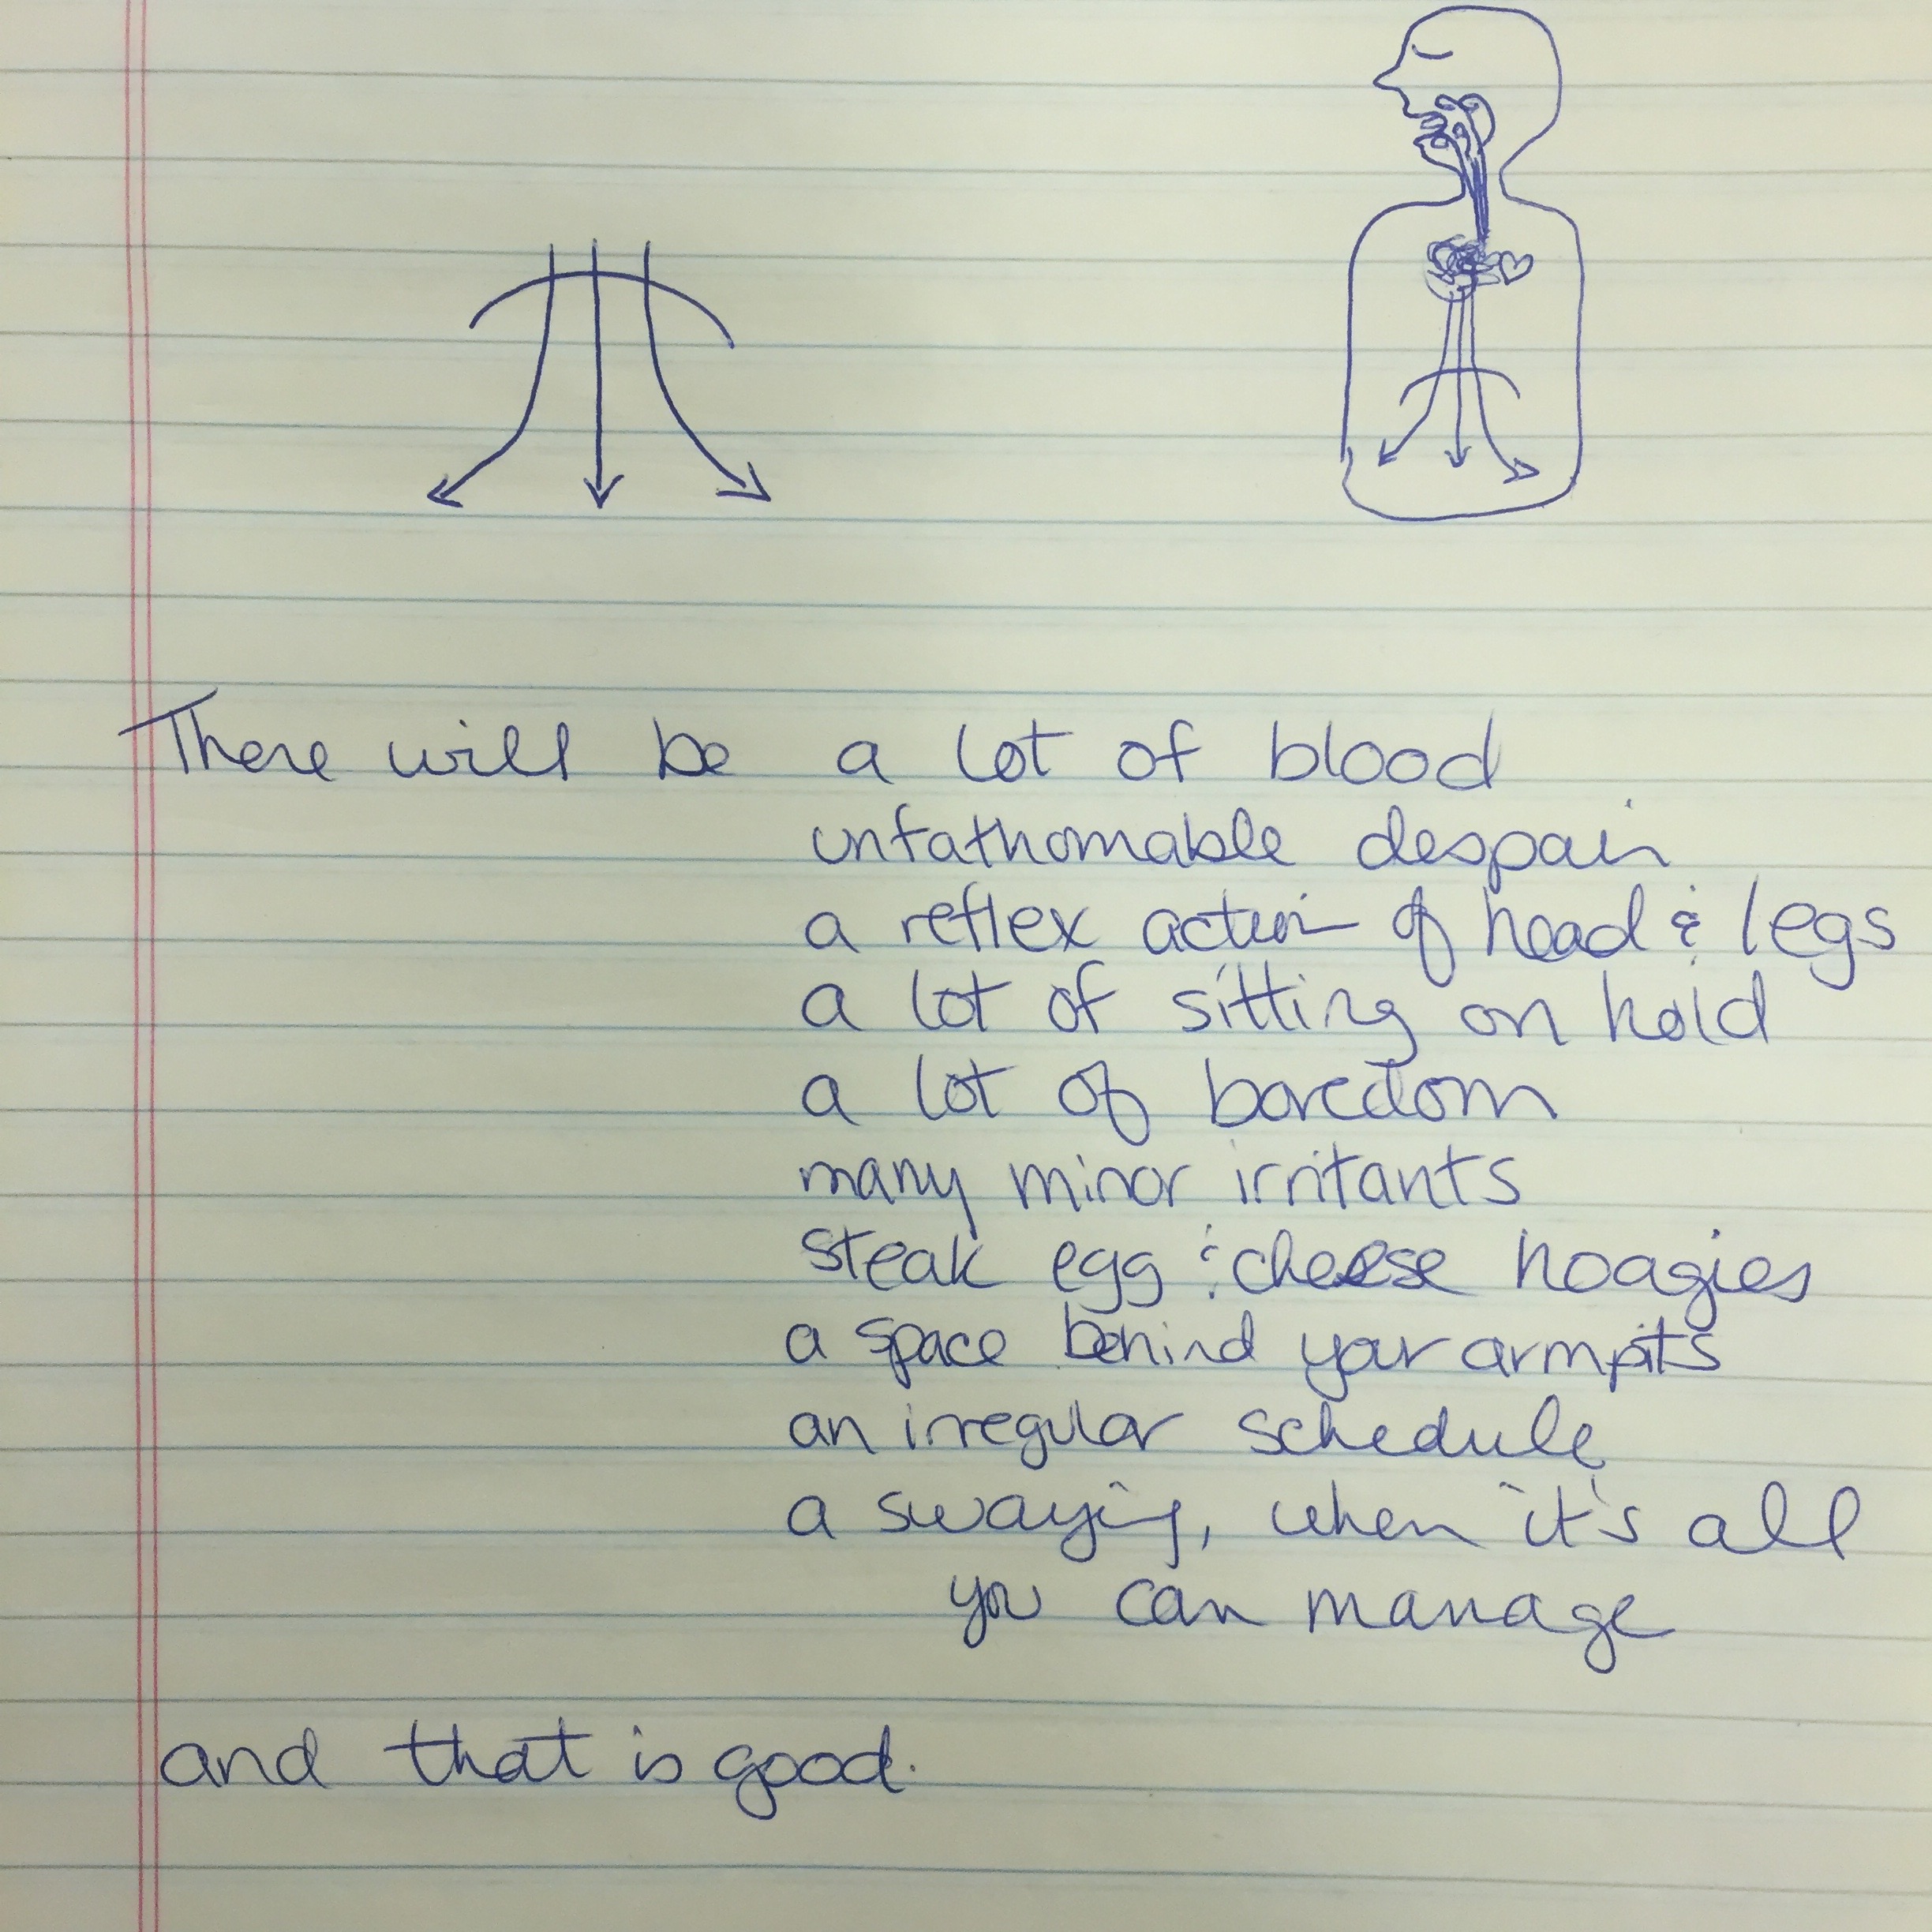 There will be a lot of blood
unfathomable despair
a reflex action of head & legs
a lot of sitting on hold
a lot of boredom
many minor irritants
steak egg & cheese hoagies
a space behind your armpits
an irregular schedule
a swaying, when it's all
you can manage
and that is good.